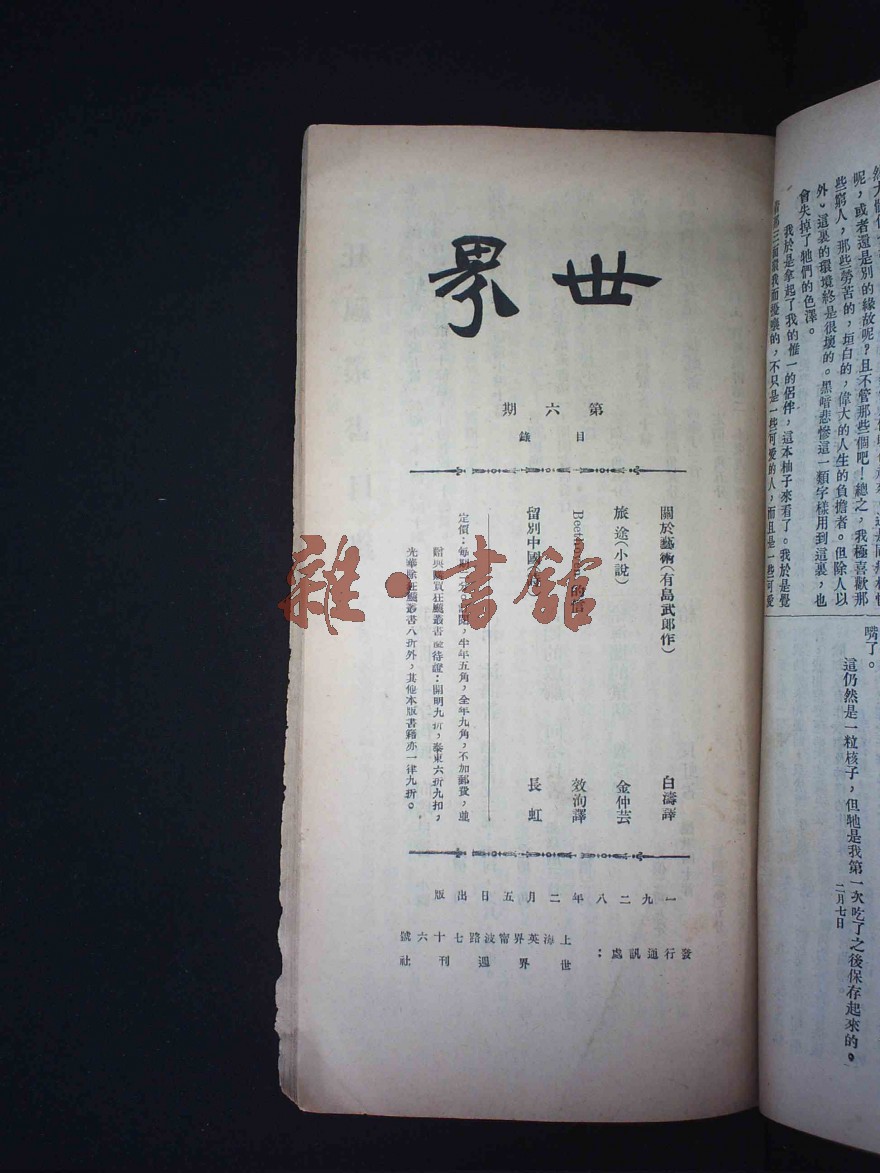 世界
第六期
目錄
關於藝術(有島武郎作) 白濤譯
旅途(小說) 金仲芸
的信 效洵譯
留別中國 長虹
定價：每期二分，半年五角，全年九角，不加郵費，並
狂飆叢書優待證：開明九折，泰東六折九扣，
光華除狂飆叢書八折外，其他本版書籍亦一律九折。
一九二八年二月五日出版
發行通訊處：
上海英界甯波路七十六號
世界週刊社
呢，或者還是別的緣故呢？且不管那些個吧！總之，我極喜歡那
些窮人，那些勞苦的，坦白的，偉大的人生的負擔者。但除人以
外，這裏的環境終是很壞的。黑暗悲慘這一類字樣用到這裏，也
會失掉了牠們的色澤。
我於是拿起了我的惟一的侶伴，這本柚子來看了。我於是覺
我而擾嚷的，不只是一些可愛的人，而且是一些可愛
嘴了。
這仍然是一粒核子，但牠是我第一次吃了之後保存起來的。
二月七日
雜·書館